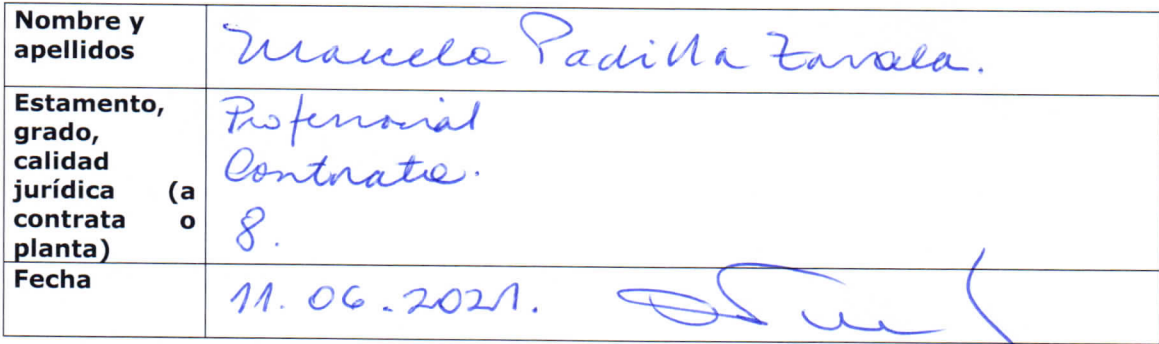 Nombre y
apellidos
Marcela Padilla Zavala.
Estamento,
grado,
calidad
jurídica (a
contrata o
planta)
Profesional
Contrata.
8.
Fecha
11.06.2021.